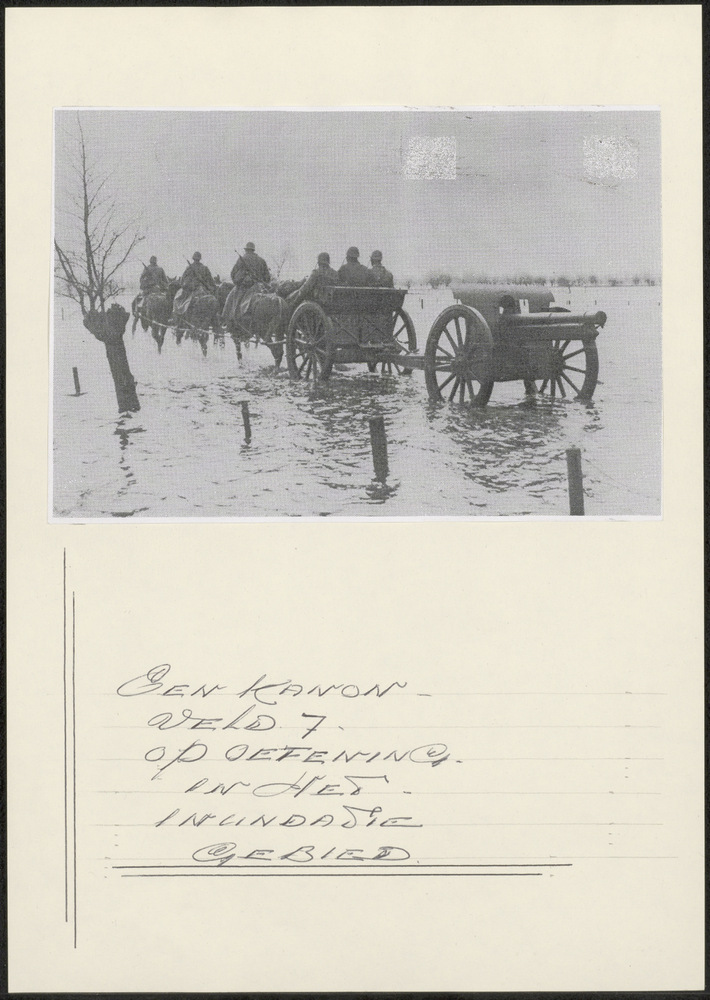 EEN KANON -
VELD 7.
OP OEFENING.
IN HET -
INUNDATIE
GEBIED.